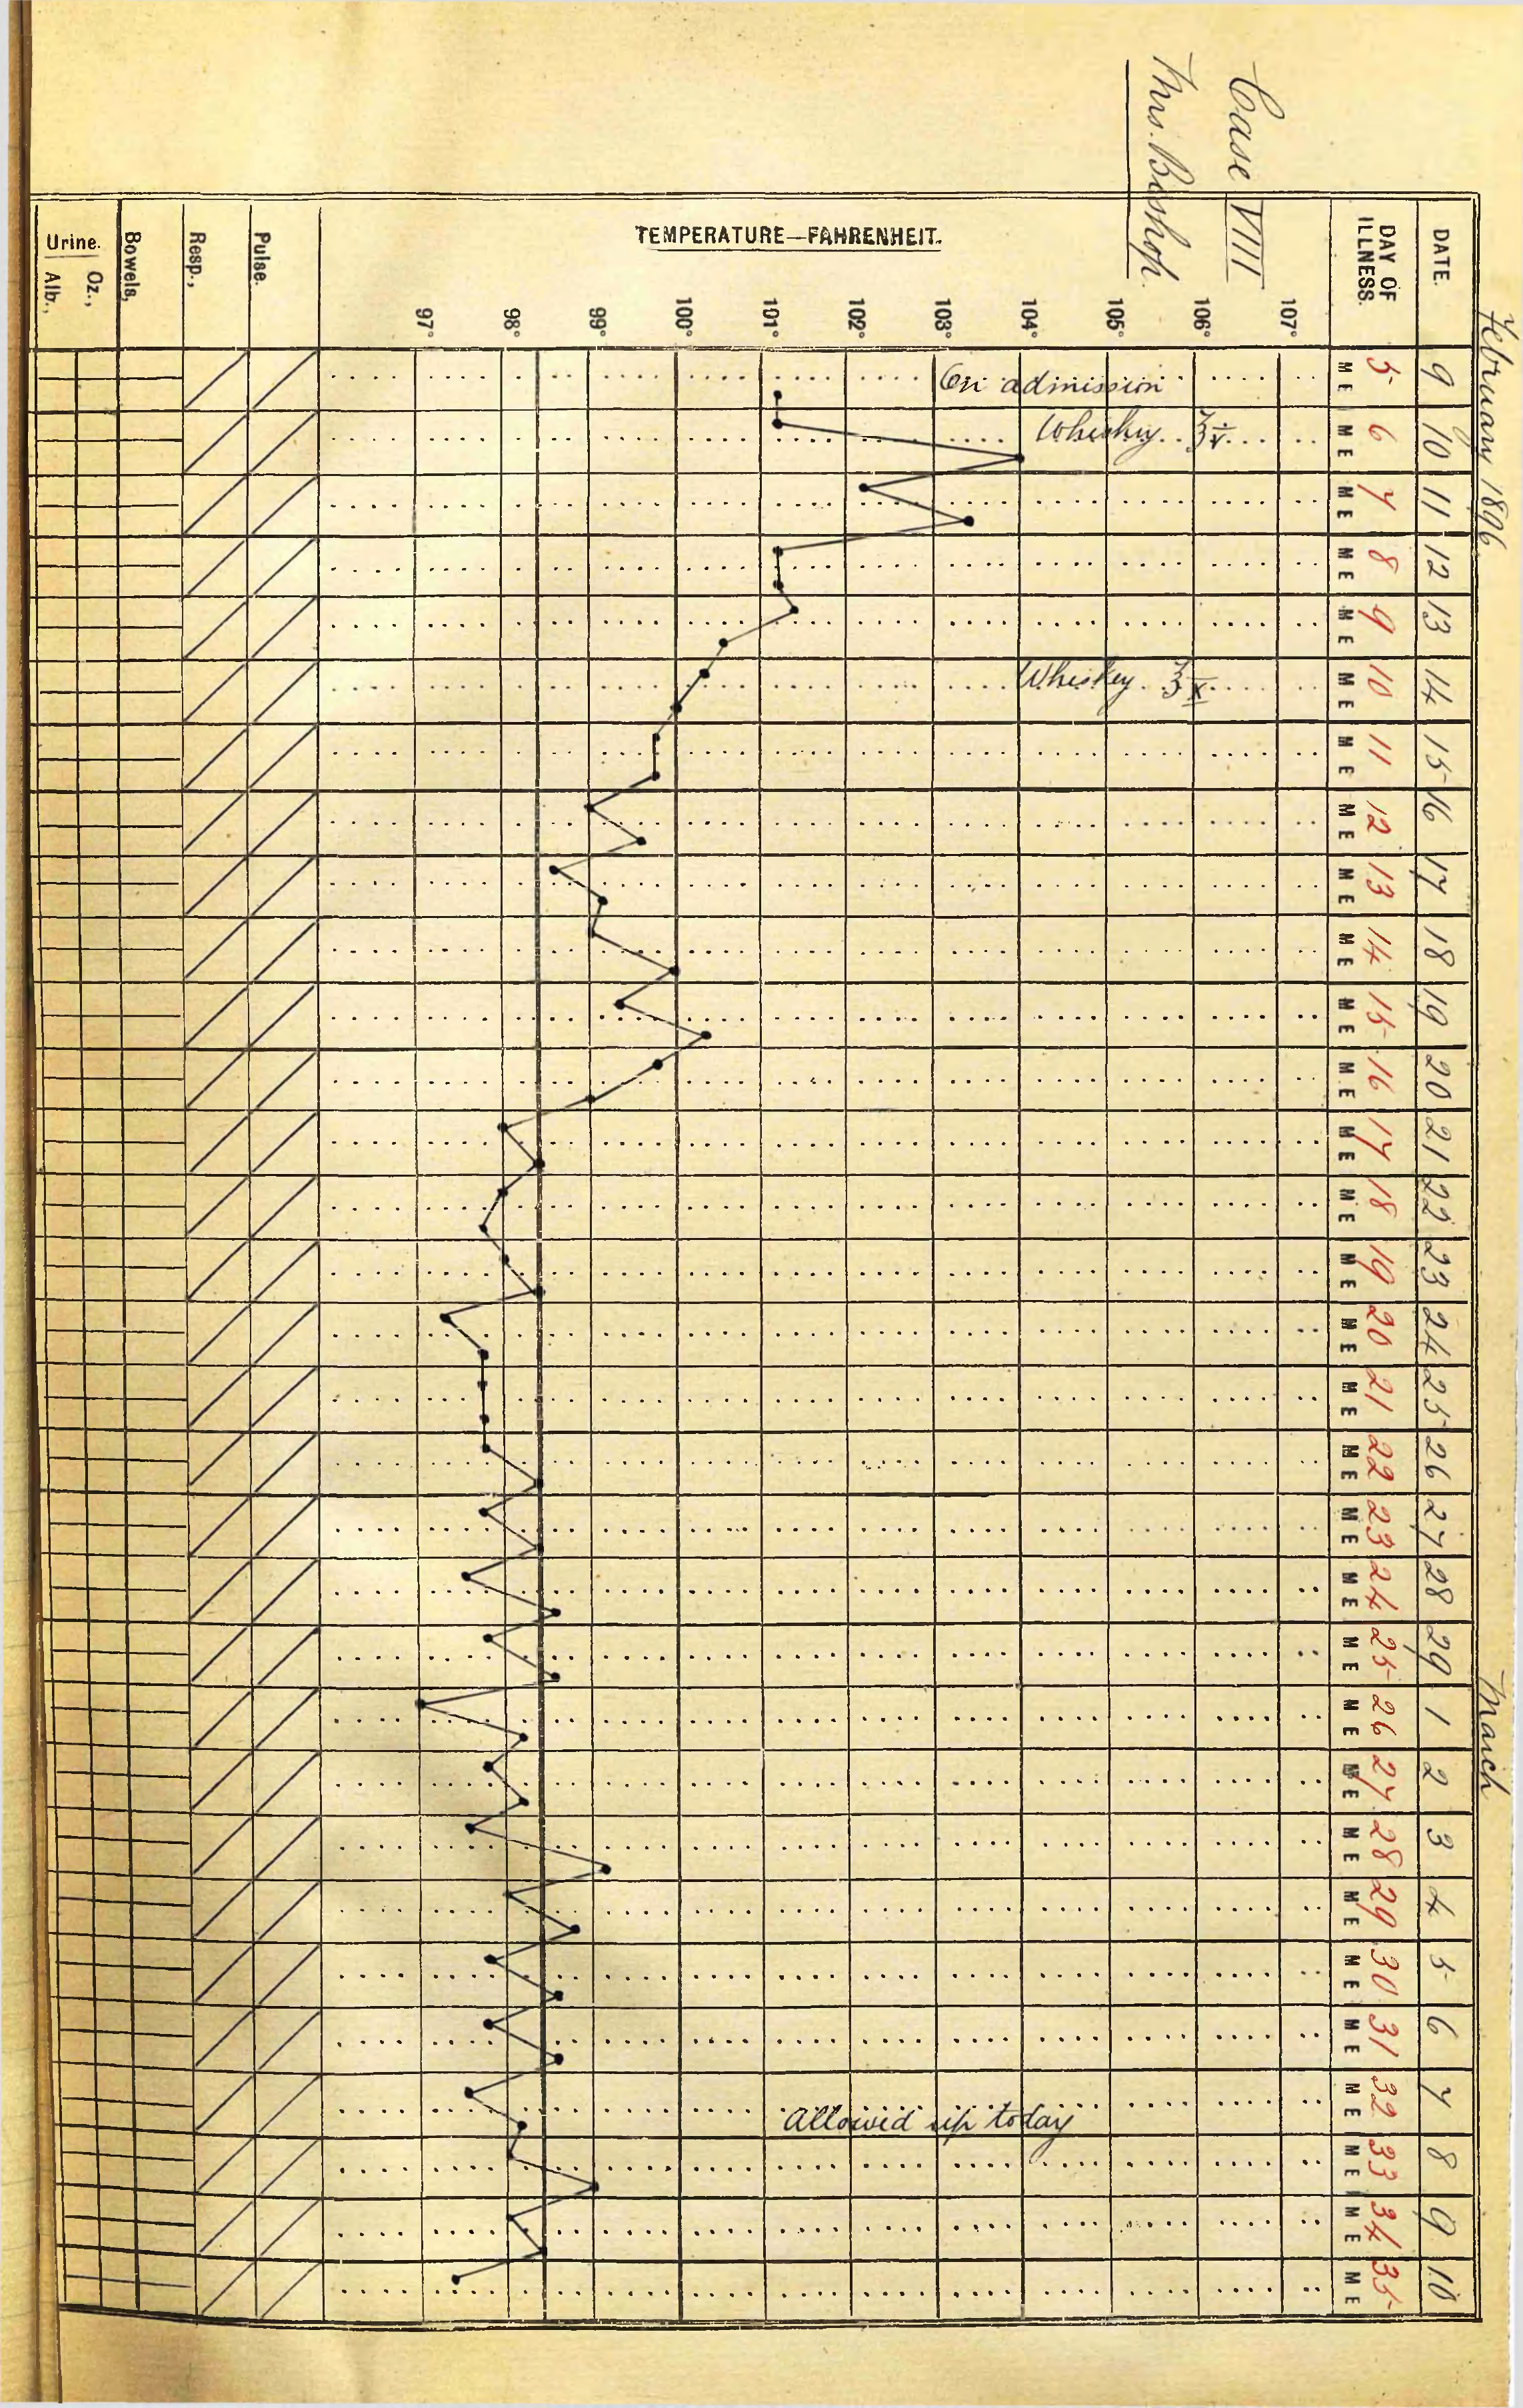 Case VIII
Mrs. Bishop.
February 1896
March
DATE. 9 10 11 12 13 14 15 16 17 18 19 20 21 22 23 24 25 26 27 28 29 1 2 3 4 5 6 7 8 9 10
DAY OF ILLNESS. 5 6 7 8 9 10 11 12 13 14 15 16 17 18 19 20 21 22 23 24 25 26 27 28 29 30 31 32 33 34 35
M E M E M E M E M E M E M E M E M E M E M E M E M E M E M E M E M E M E M E M E M E M E M E M E M E M E M E M E M E M E M E
TEMPERATURE—FAHRENHEIT.
107°
106°
105°
104°
103°
102°
101°
100°
99°
98°
97°
On admission
Whiskey ℥v
Whiskey ℥x
Allowed up today
Pulse.
Resp.,
Bowels,
Urine.
Oz.,
Alb.,